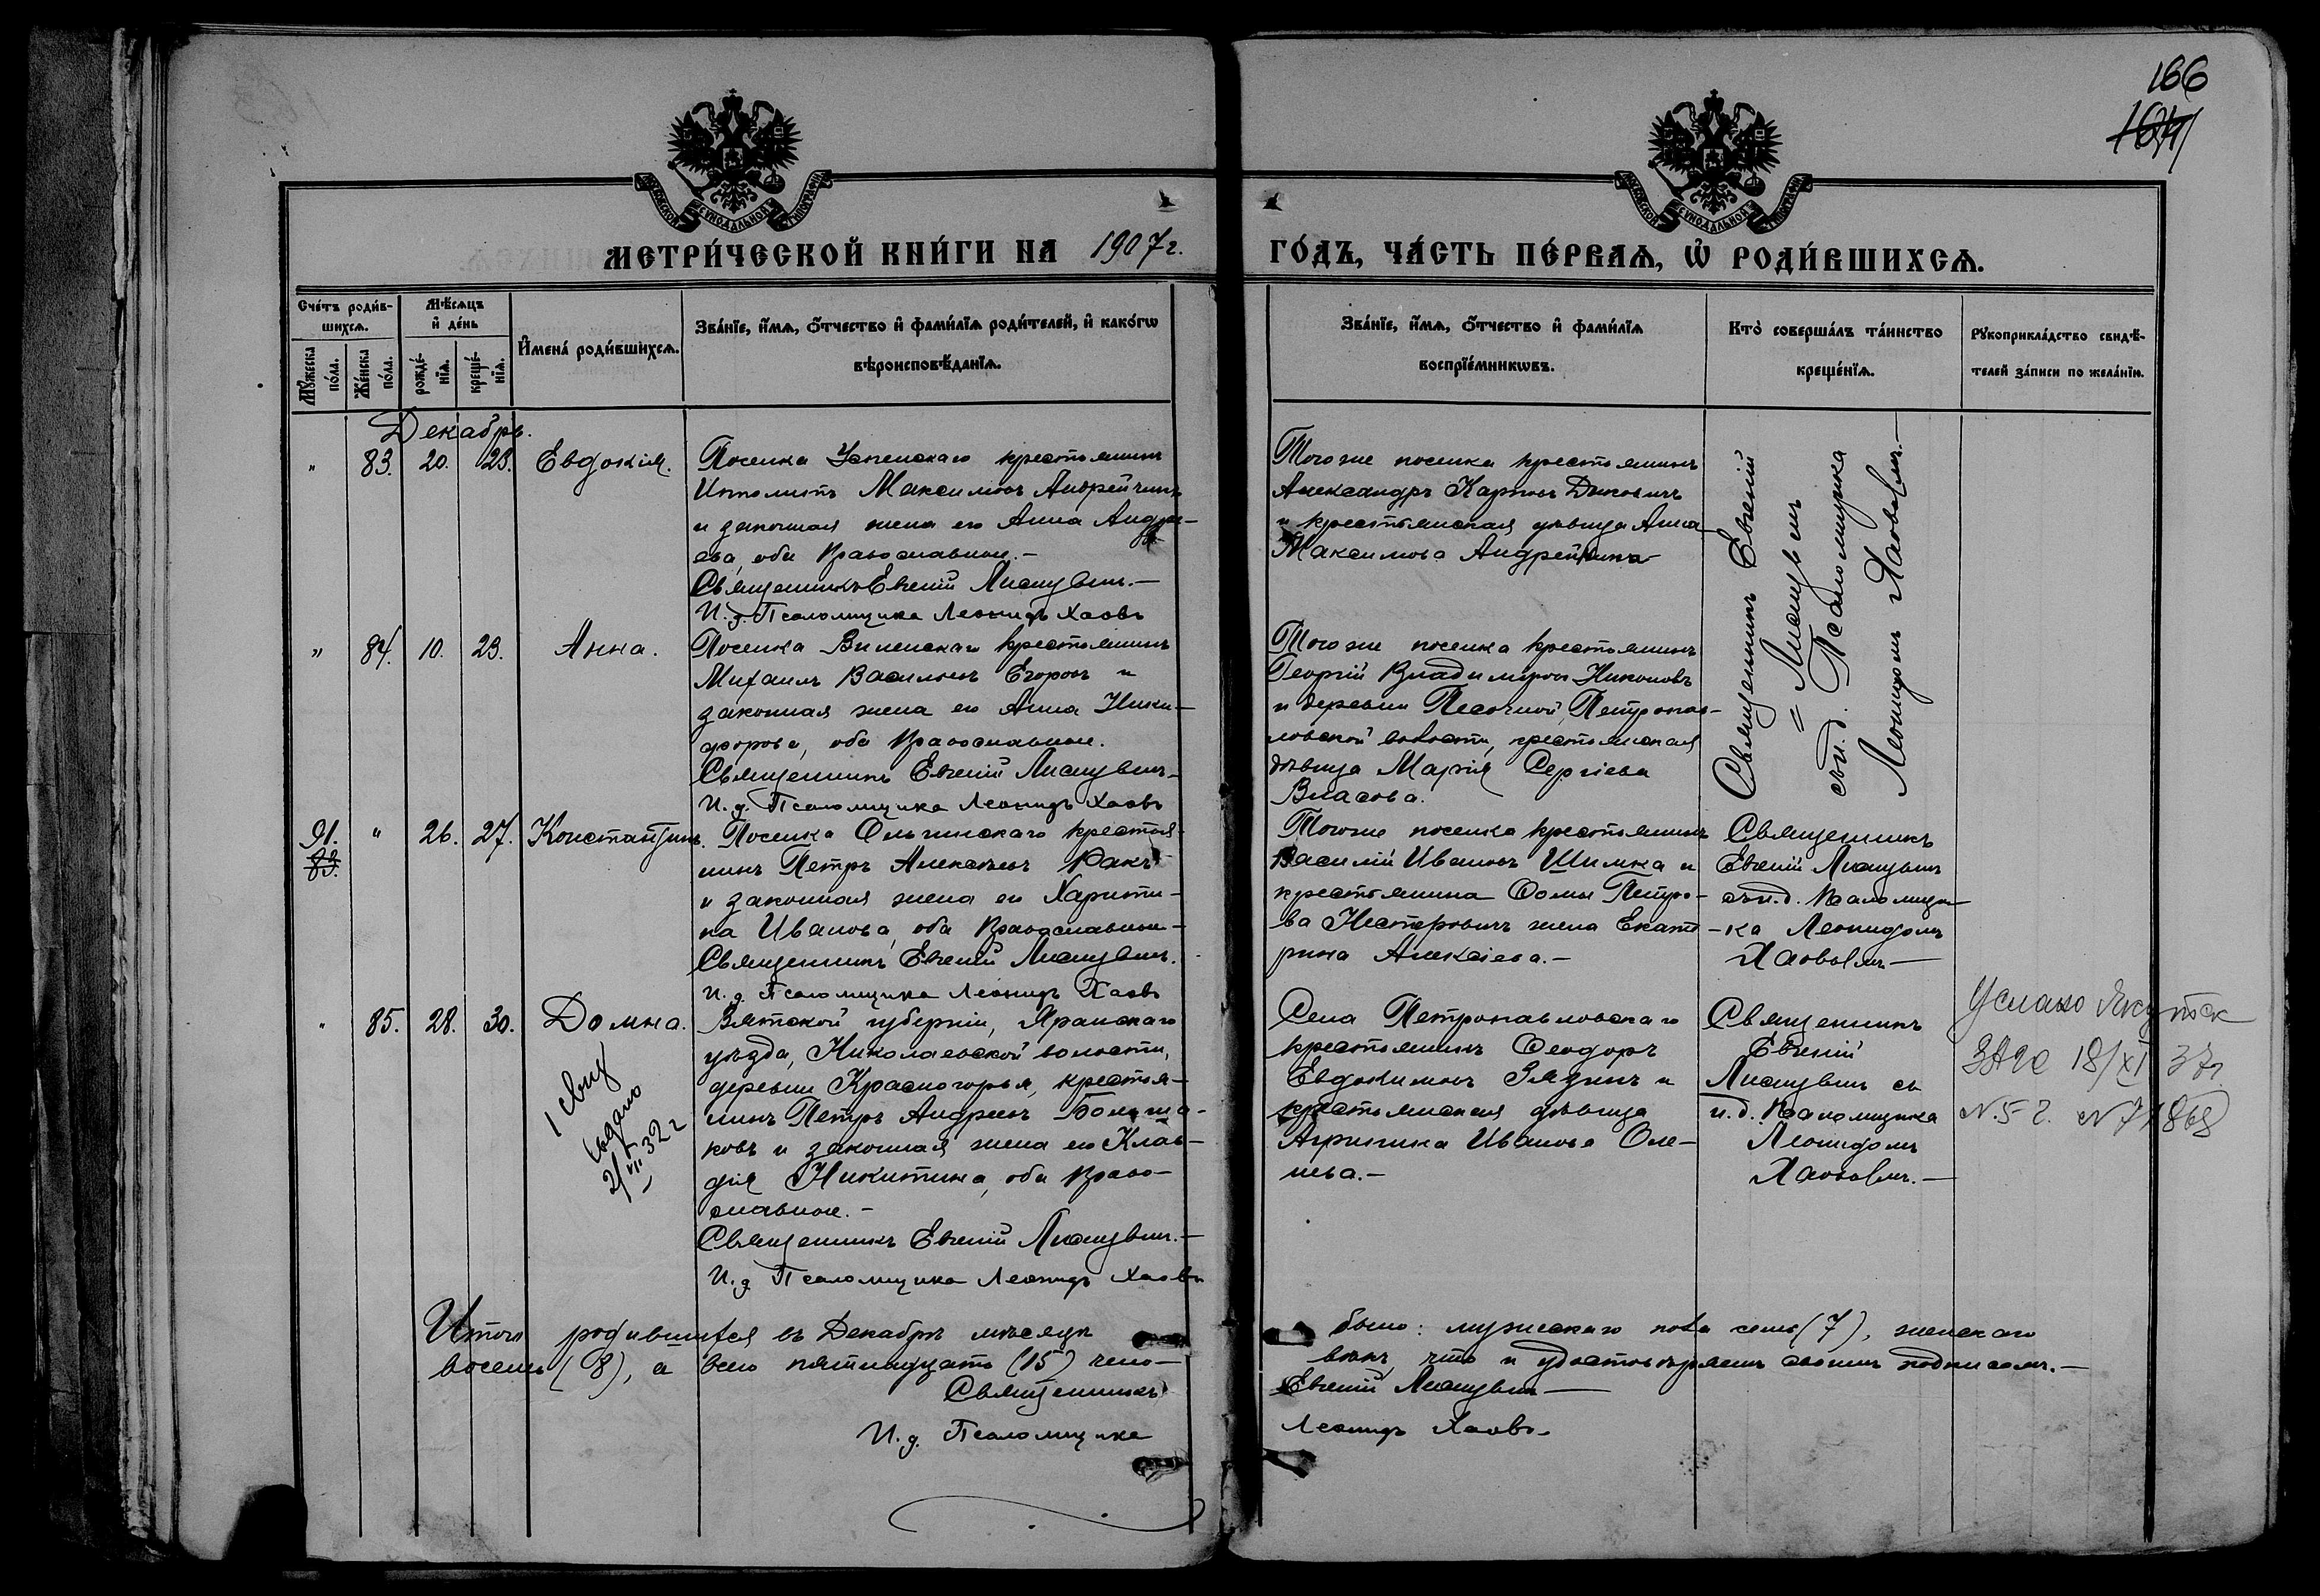 166
164
МОСКОВСКОЙ СѴНОДАЛЬНОЙ ТИПОГРАФІИ
МОСКОВСКОЙ СѴНОДАЛЬНОЙ ТИПОГРАФІИ
МЕТРИ́ЧЕСКОЙ КНИ́ГИ НА 1907 г. ГО́ДЪ, ЧА́СТЬ ПЕ́РВАѦ, Ѡ҆ РОДИ́ВШИХСѦ.
Сче́тъ роди́вшихсѧ.
Мѣ́сѧцъ и҆ де́нь
И҆мена́ роди́вшихсѧ.
Зва́нїе, и҆́мѧ, ѻ҆́тчество и҆ фами́лїѧ роди́телей, и҆ како́гѡ
вѣроисповѣ́данїѧ.
Зва́нїе, и҆́мѧ, ѻ҆́тчество и҆ фами́лїѧ
воспрїе́мникѡвъ.
Кто̀ соверша́лъ та́инство
креще́нїѧ.
Рꙋкоприкла́дство свидѣ́-
телей за́писи по жела́нїю.
Мꙋ́жеска по́ла.
Же́нска по́ла.
рожде́-нїѧ.
креще́-нїѧ.
Декабрь.
" 83. 20. 23. Евдокія.
Поселка Успенскаго крестьянинъ
Ипполитъ Максимовъ Андрейчикъ
и законная жена его Анна Андре-
ева, оба православные.-
Священникъ Евгеній Лисицынъ.-
И. д. Псаломщика Леонидъ Хаовъ
Тогоже поселка крестьянинъ
Александръ Карповъ
и крестьянская дѣвица Анна
Максимова Андрейчика
Священникъ Евгеній
Лисицынъ
съ и. д. Псаломщика
Леонидомъ Хаовымъ.-
" 84. 10. 23. Анна.
Поселка Виленскаго крестьянинъ
Михаилъ Васильевъ Егоровъ и
законная жена его Анна Ники-
форова, оба православные.
Священникъ Евгеній Лисицынъ.-
И. д. Псаломщика Леонидъ Хаовъ
Тогоже поселка крестьянинъ
Георгій Владиміровъ Никоновъ
и деревни Песочной, Петропав-
ловской волости, крестьянская
дѣвица Марія Сергіева
Власова.
91. " 26. 27. Константинъ.
83.
Поселка Ольгинскаго крестья-
нинъ Петръ Алексѣевъ Ракъ
и законная жена его Харити-
на Иванова, оба православные-
Священникъ Евгеній Лисицынъ.
И. д. Псаломщика Леонидъ Хаовъ
Тогоже поселка крестьянинъ
Василій Ивановъ Шимка и
крестьянина Ѳомы Петро-
ва Нестеровичъ жена Екате-
рина Алексіева.-
Священникъ
Евгеній Лисицынъ
съ и. д. Псаломщи-
ка Леонидомъ
Хаовымъ-
" 85. 28. 30. Домна.
Вятской губерніи, Яранскаго
уѣзда, Николаевской волости,
деревни Красногорья, крестья-
нинъ Петръ Андреевъ Больша-
ковъ и законная жена его Клав-
дія Никитина, оба право-
славные.-
Священникъ Евгеній Лисицынъ.-
И. д. Псаломщика Леонидъ Хаовъ
Села Петропавловскаго
крестьянинъ Ѳеодоръ
Евдокимовъ Зязинъ и
крестьянская дѣвица
Агрипина Иванова Оле-
нева.-
Священникъ
Евгеній
Лисицынъ съ
и. д. Псаломщика
Леонидомъ
Хаовымъ.-
1 свид
выдано
2/VII 32 г
Услано Якутск
ЗАГС 18/XI 37г.
Итого родившихся въ Декабрѣ мѣсяцѣ было: мужескаго пола семь (7), женскаго
восемь (8), а всего пятнадцать (15) чело-вѣкъ, что и удостовѣряемъ своимъ подписомъ.-
Священникъ Евгеній Лисицынъ-
И. д. Псаломщика Леонидъ Хаовъ-